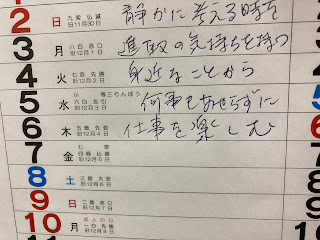 2 日 九紫 仏滅 旧11月30日 静かに考える時を
3 月 八白 赤口 旧12月1日 進取の気持ちを持つ
4 火 七赤 先勝 旧12月2日 身近なことから
5 水 小寒 三りんぼう 六白 友引 旧12月3日 何事もあせらずに
6 木 五黄 先負 旧12月4日 仕事を楽しむ
7 金 七草 四緑 仏滅 旧12月5日
8 土 三碧 大安 旧12月6日
9 日 二黒 赤口 旧12月7日
10 月 成人の日 一白 先勝 旧12月8日